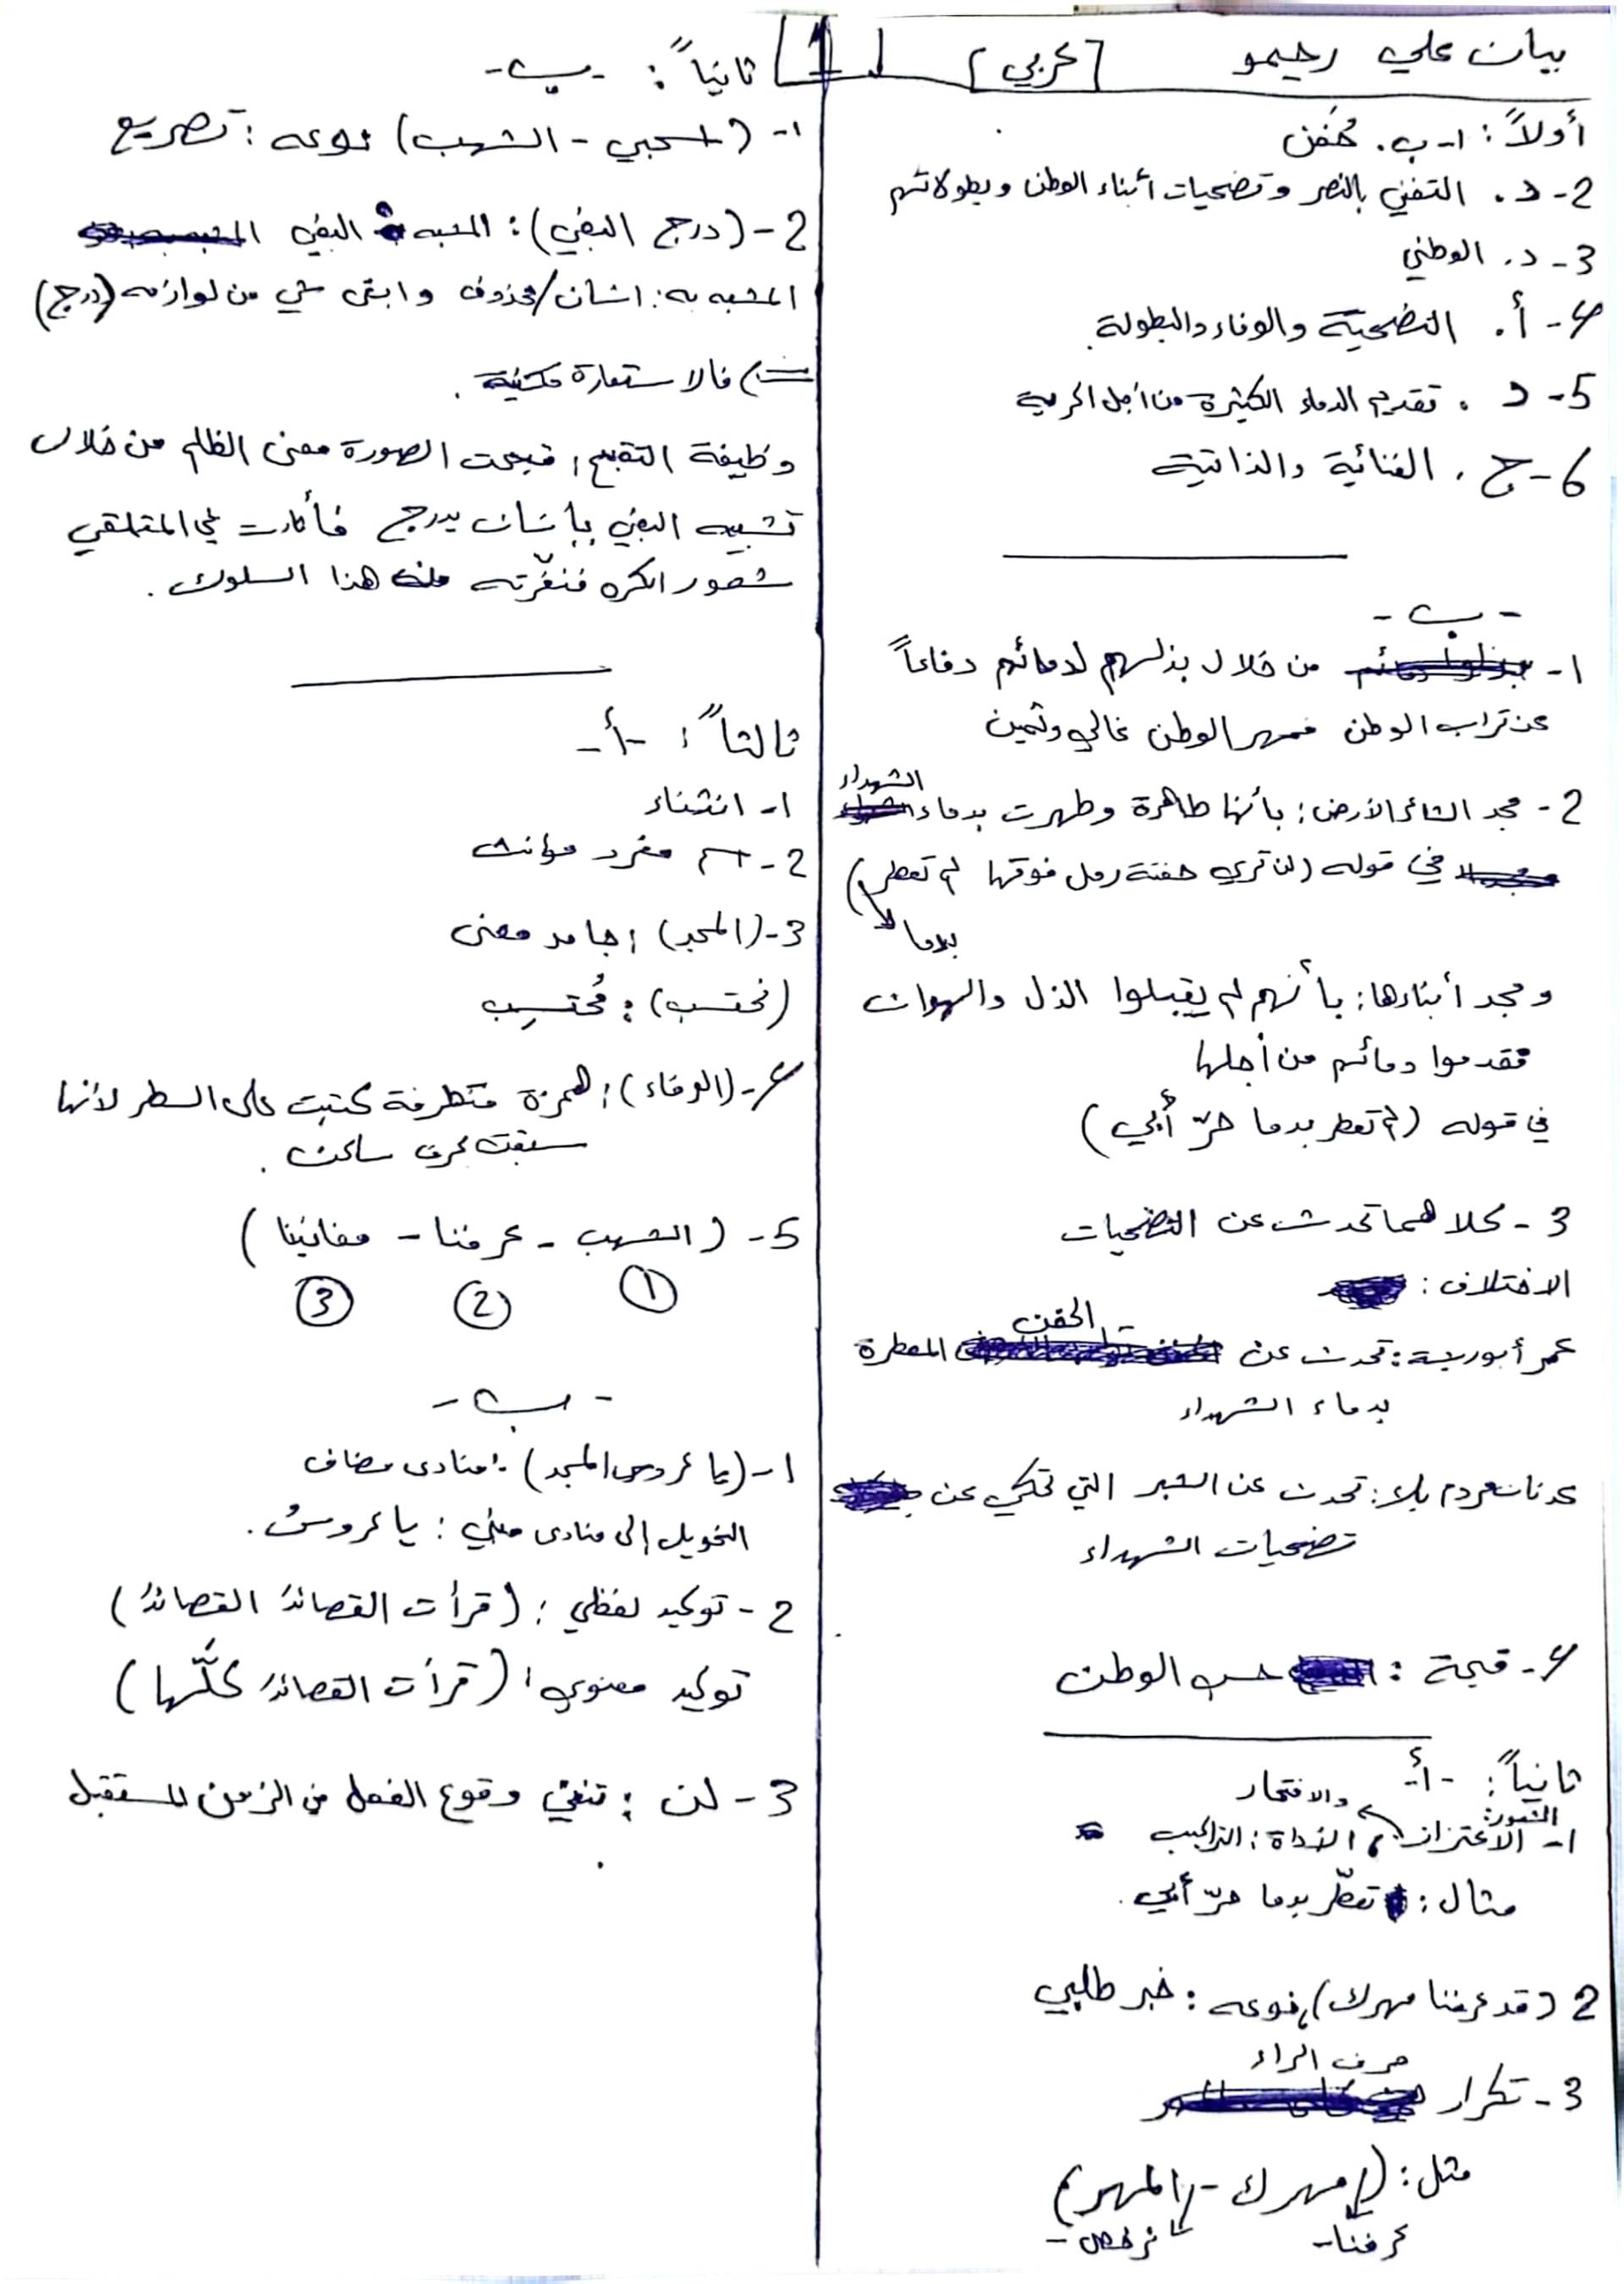 بيان علي رحيمو [عربي] 1
أولاً: 1- ب. حُفَن
2- د. التغني بالنصر وتضحيات أبناء الوطن وبطولاتهم
3- د. الوطني
4- أ. التضحية والوفاء والبطولة.
5- د. تقديم الدماء الكثيرة من أجل الحرية
6- ج. الغنائية والذاتية
- ب -
1- من خلال بذلهم لدمائهم دفاعاً
عن تراب الوطن فمهر الوطن غالي وثمين
2- مجد الشاعر الأرض: بأنها طاهرة وطهرت بدماء الشهداء
في قوله (لن تري حفنة رمل فوقها لم تعطر)
بدما
ومجد أبناءها: بأنهم لم يقبلوا الذل والهوان
فقدموا دمائهم من أجلها
في قوله (لم تعطر بدما حرّ أبي)
3- كلاهما تحدث عن التضحيات
الاختلاف:
عمر أبو ريشة: تحدث عن الحفن المعطرة
بدماء الشهداء
عدنان مردم بك: تحدث عن الشبر التي تحكي عن
تضحيات الشهداء
4- قيمة: حب الوطن
ثانياً: -أ-
1- الشعور: الاعتزاز والافتخار، الأداة: التراكيب
مثال: تعطّر بدما حرّ أبي.
2 (قد عرفنا مهرك)، نوعه: خبر طلبي
3- تكرار حرف الراء
مثل: (مهرك - المهر)
عرفنا - ترخص -
ثانياً: -ب-
1- (اسحبي - الشهب) نوعه: تصريع
2- (درج البغي): المشبه البغي
المشبه به: انسان/محذوف وابقى شي من لوازمه (درج)
فالاستعارة مكنية.
وظيفة التقبيح، قبحت الصورة معنى الظلم من خلال
تشبيه البغي بإنسان يدرج فأثارت في المتلقي
شعور الكره فنفّرته من هذا السلوك.
ثالثاً: -أ-
1- انتشاء
2- اسم مفرد مؤنث
3- (المجد): جامد معنى
(نحتسب): مُحتسِب
4- (الوفاء): همزة متطرفة كتبت على السطر لأنها
سبقت بحرف ساكن.
5- (الشهب - عرفنا - مغانينا)
1 2 3
- ب -
1- (يا عروس المجد): منادى مضاف
التحويل إلى منادى مبني: يا عروسُ.
2- توكيد لفظي: (قرأت القصائدَ القصائدَ)
توكيد معنوي: (قرأت القصائدَ كلَّها)
3- لن: تنفي وقوع الفعل في الزمن المستقبل